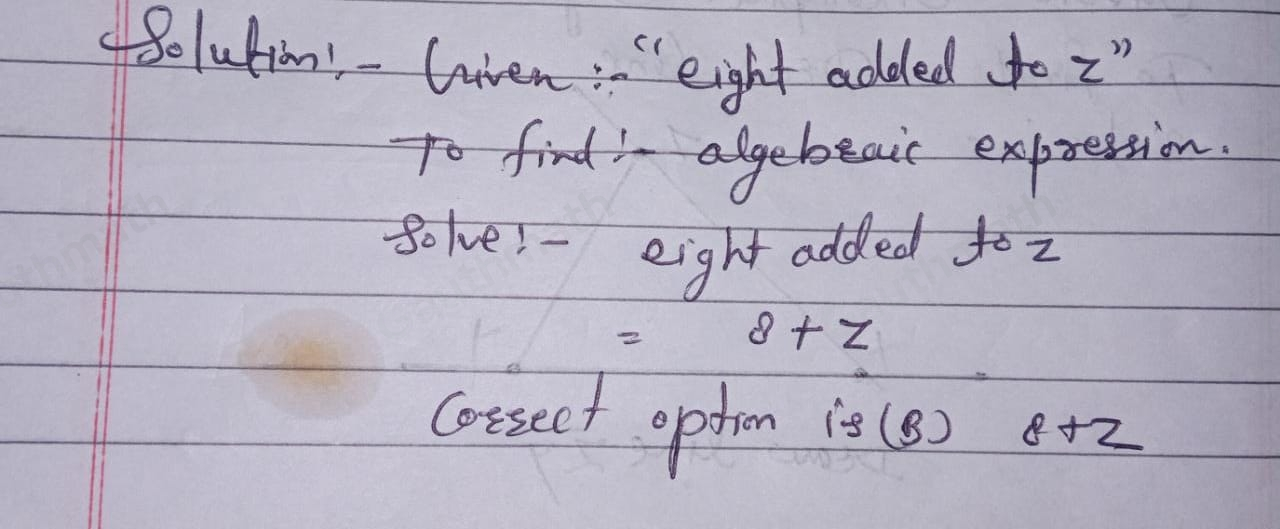 Solution:- Given :- "eight added to z"
To find :- algebraic expression.
Solve :- eight added to z
= 8 + z
Correct option is (B) 8+z